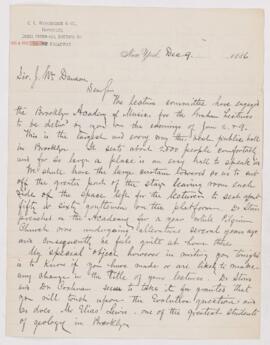 New York, Dec 9 1886
Sir J. Wm Dawson
Dear Sir
The lecture committee have engaged
the Brooklyn Academy of Music for the
lectures
to be delivered by you on the evenings of Jan 2 & 9.
This is the largest and every way the best public hall
in Brooklyn. It seats about 2000 people comfortably
and for so large a place is an easy hall to speak in
We shall have the large curtain lowered so as to cut
off the greater part of the stage leaving room each
side of the space left for the lecturer to seat about
fifty or sixty gentlemen on the platform. Dr
preached in the Academy for a year while
Church was undergoing alterations several years ago
and consequently he feels quite at home there
My special object however in writing you tonight
is to know if you have made or are likely to make
any change in the title of your lectures. Dr
Dr Cochran seem to take it for granted that
you will touch upon the Evolution question and
so does Mr Elias Lewis one of the greatest students
of geology in Brooklyn